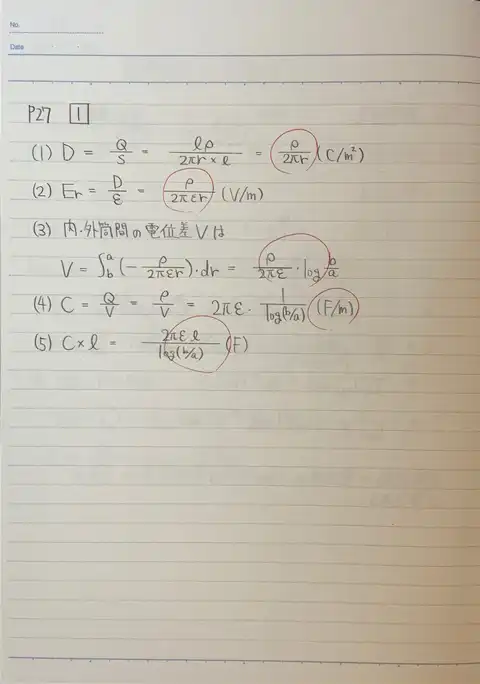 No.
Date
P27 1
(1) D = Q/S = lρ/(2πr × l) = ρ/(2πr) (C/m²)
(2) Er = D/ε = ρ/(2πεr) (V/m)
(3) 内・外筒間の電位差Vは
V = ∫_b^a (-ρ/(2πεr))・dr = ρ/(2πε)・log b/a
(4) C = Q/V = ρ/V = 2πε・1/log(b/a) (F/m)
(5) C×l = 2πεl/log(b/a) (F)